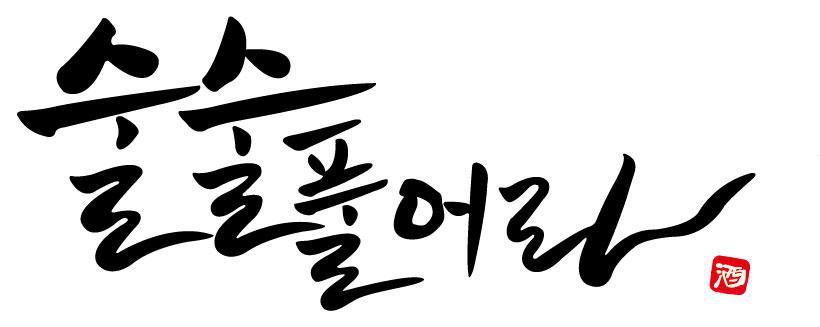 술술풀어라